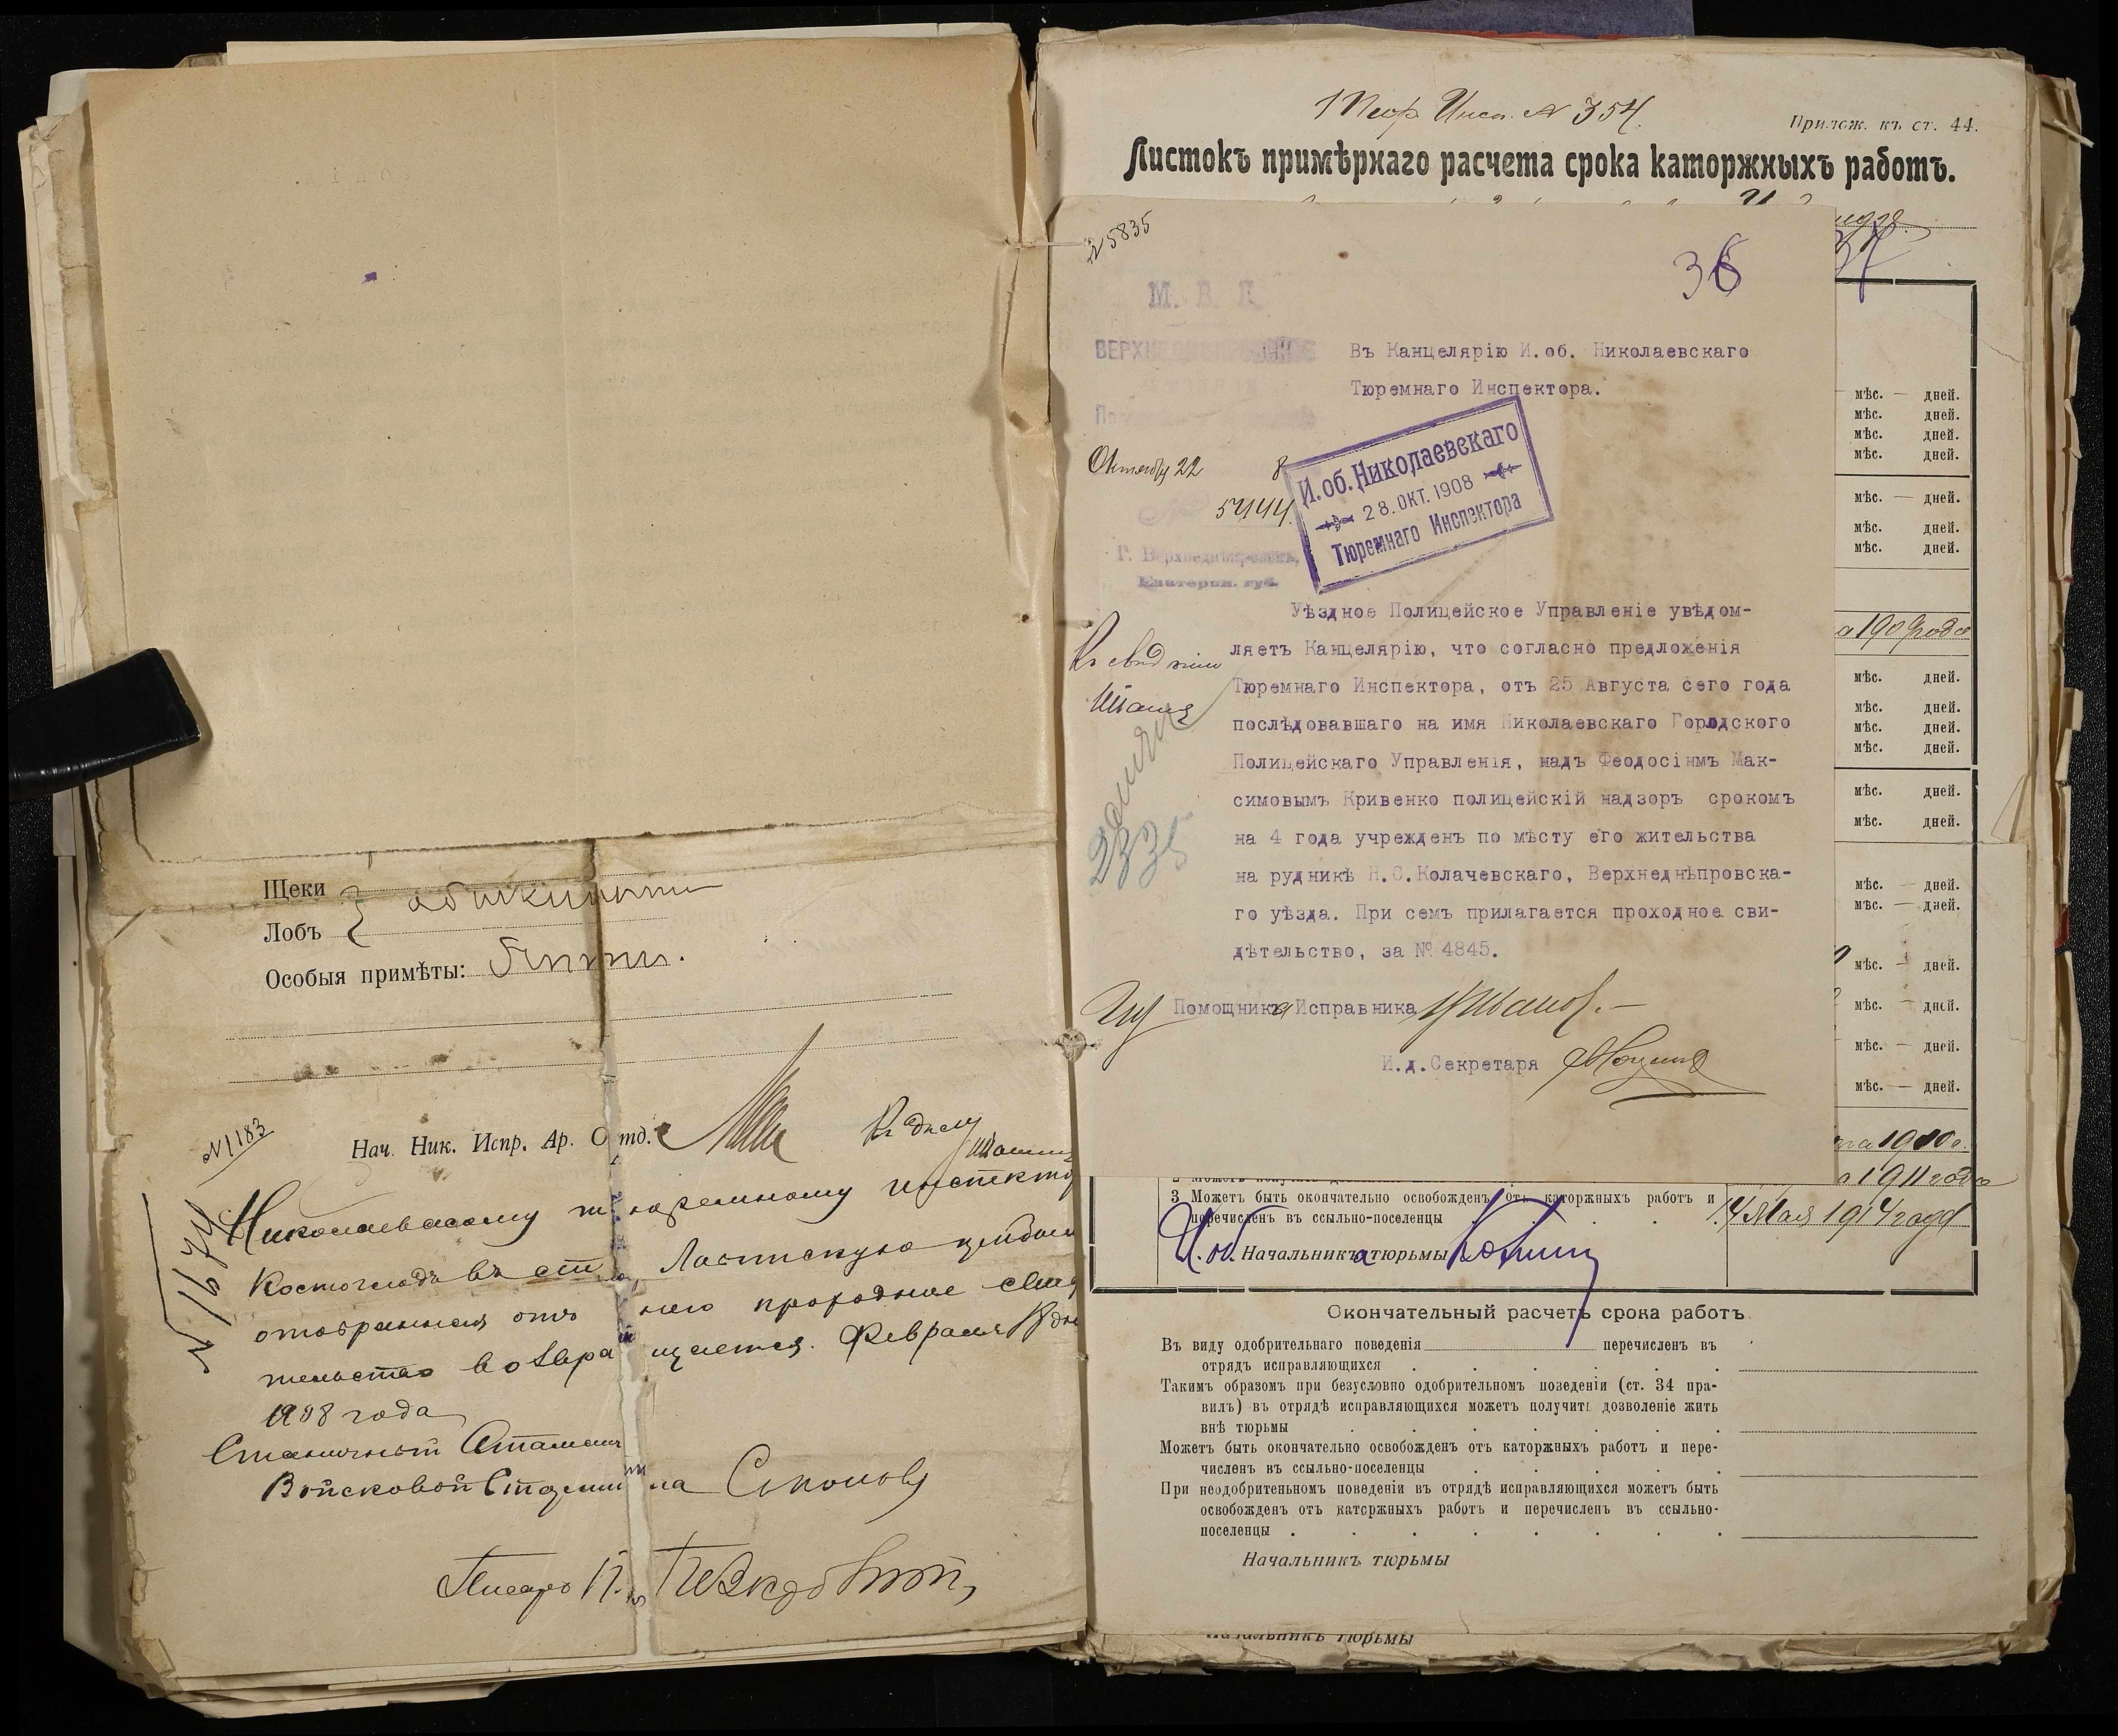 Щеки
Лобъ
Особыя примѣты:
№1183
Нач. Ник. Испр. Ар. Отд.
Къ дѣлу
№ 1674
Николаевскому тюремному инспекто
отобранная отъ него проходное свид
тельство возвращается. Февраля дн
1908 года
Станичный Атаманъ
Войсковой Старшина
Писарь
№ 354
Прилож. къ ст. 44.
Листокъ примѣрнаго расчета срока каторжныхъ работъ.
№ 5835
36
37
М. В. Д.
ВЕРХНЕДНѢПРОВСКОЕ
Въ Канцелярію И.об. Николаевскаго
Тюремнаго Инспектора.
Октября 22 8
5444
И. об. Николаевскаго
28. ОКТ. 1908
Тюремнаго Инспектора
Г. Верхнеднѣпровскъ,
Екатерин. губ.
Уѣздное Полицейское Управленіе увѣдом-
ляетъ Канцелярію, что согласно предложенія
Тюремнаго Инспектора, отъ 25 Августа сего года
послѣдовавшаго на имя Николаевскаго Городского
Полицейскаго Управленія, надъ Феодосіимъ Мак-
симовымъ Кривенко полицейскій надзоръ срокомъ
на 4 года учрежденъ по мѣсту его жительства
на рудникѣ Н.С.Колачевскаго, Верхнеднѣпровска-
го уѣзда. При семъ прилагается проходное сви-
дѣтельство, за № 4845.
2335
Помощника Исправника
И.д.Секретаря
мѣс. — дней.
мѣс. дней.
мѣс. дней.
мѣс. дней.
мѣс. — дней.
мѣс. дней.
мѣс. дней.
а 1909 года
мѣс. дней.
мѣс. дней.
мѣс. дней.
мѣс. дней.
мѣс. дней.
мѣс. дней.
мѣс. — дней.
мѣс. — дней.
мѣс. — дней.
мѣс. — дней.
мѣс. — дней.
мѣс. — дней.
та 1910 г.
а 1911 года
3 Можетъ быть окончательно освобожденъ отъ каторжныхъ работъ и
перечисленъ въ ссыльно-поселенцы
14 Мая 1914 года
И. об. Начальника тюрьмы
Окончательный расчетъ срока работъ
Въ виду одобрительнаго поведенія перечисленъ въ
отрядъ исправляющихся
Такимъ образомъ при безусловно одобрительномъ поведеніи (ст. 34 пра-
вилъ) въ отрядѣ исправляющихся можетъ получить дозволеніе жить
внѣ тюрьмы
Можетъ быть окончательно освобожденъ отъ каторжныхъ работъ и пере-
численъ въ ссыльно-поселенцы
При неодобрительномъ поведеніи въ отрядѣ исправляющихся можетъ быть
освобожденъ отъ каторжныхъ работъ и перечисленъ въ ссыльно-
поселенцы
Начальникъ тюрьмы
Начальникъ тюрьмы